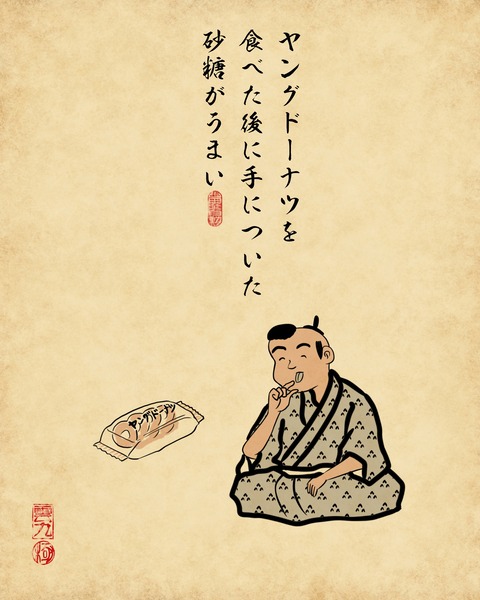 ヤングドーナツを
食べた後に手についた
砂糖がうまい
ヤングドーナツ